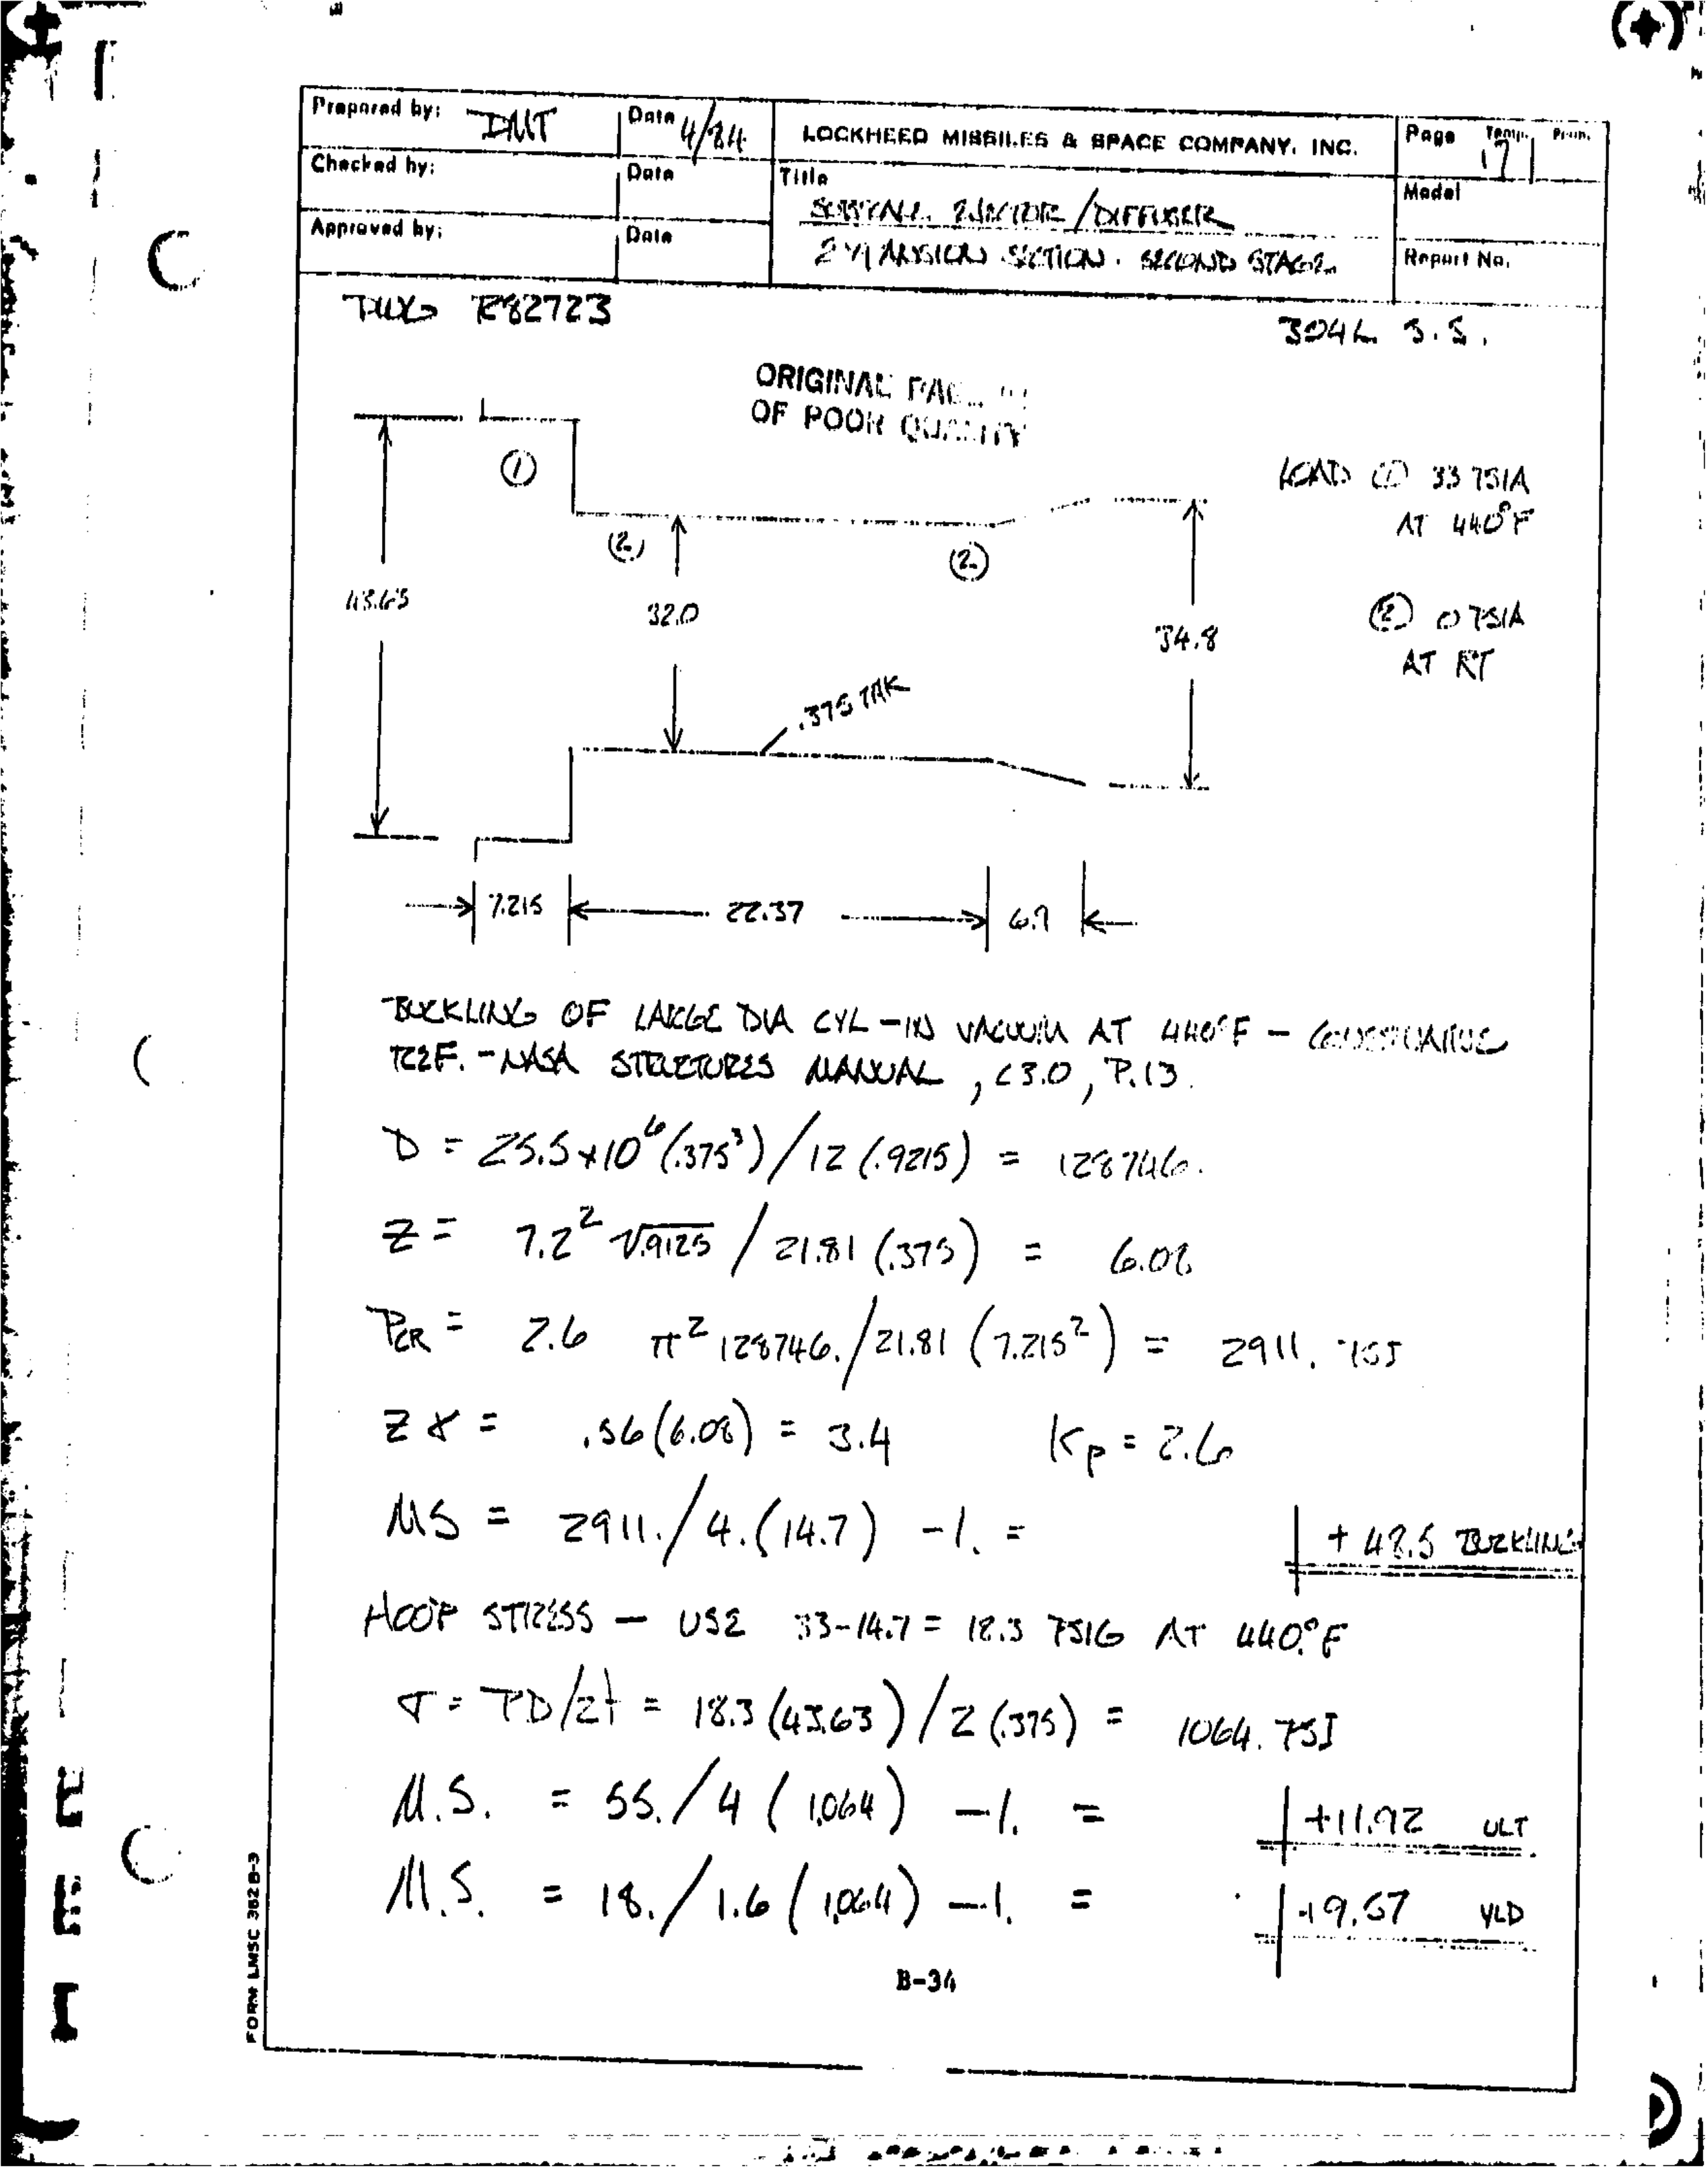 Prepared by: DMT Date 4/84 LOCKHEED MISSILES & SPACE COMPANY, INC. Page Temp. 17 Perm.
Checked by: Date Title Model
EJECTOR/DIFFUSER
Approved by: Date EXPANSION SECTION. SECOND STAGE Report No.
DWG R82723
304L S.S.
ORIGINAL
OF POOR QUALITY
①
LOAD ① 33 PSIA
AT 440°F
② ②
43.63
32.0
34.8
② 0 PSIA
AT RT
.375
7.215 22.37 6.7
BUCKLING OF LARGE DIA CYL - IN VACUUM AT 440°F - CONSERVATIVE
REF. - NASA STRUCTURES MANUAL, C3.0, P.13.
D = 25.5 x 10⁶ (.375³) / 12 (.9215) = 128746.
Z = 7.2² √.9125 / 21.81 (.375) = 6.08
PCR = 2.6 π² 128746. / 21.81 (7.215²) = 2911. PSI
Z ɣ = .56 (6.08) = 3.4 Kp = 2.6
MS = 2911. / 4. (14.7) -1. = +48.5 BUCKLING
HOOP STRESS - USE 33-14.7 = 18.3 PSIG AT 440.°F
σ = PD/2t = 18.3 (43.63) / 2 (.375) = 1064. PSI
M.S. = 55. / 4 (1.064) -1. = +11.92 ULT
M.S. = 18. / 1.6 (1.064) -1. = +9.57 YLD
B-34
FORM LMSC 362B-3